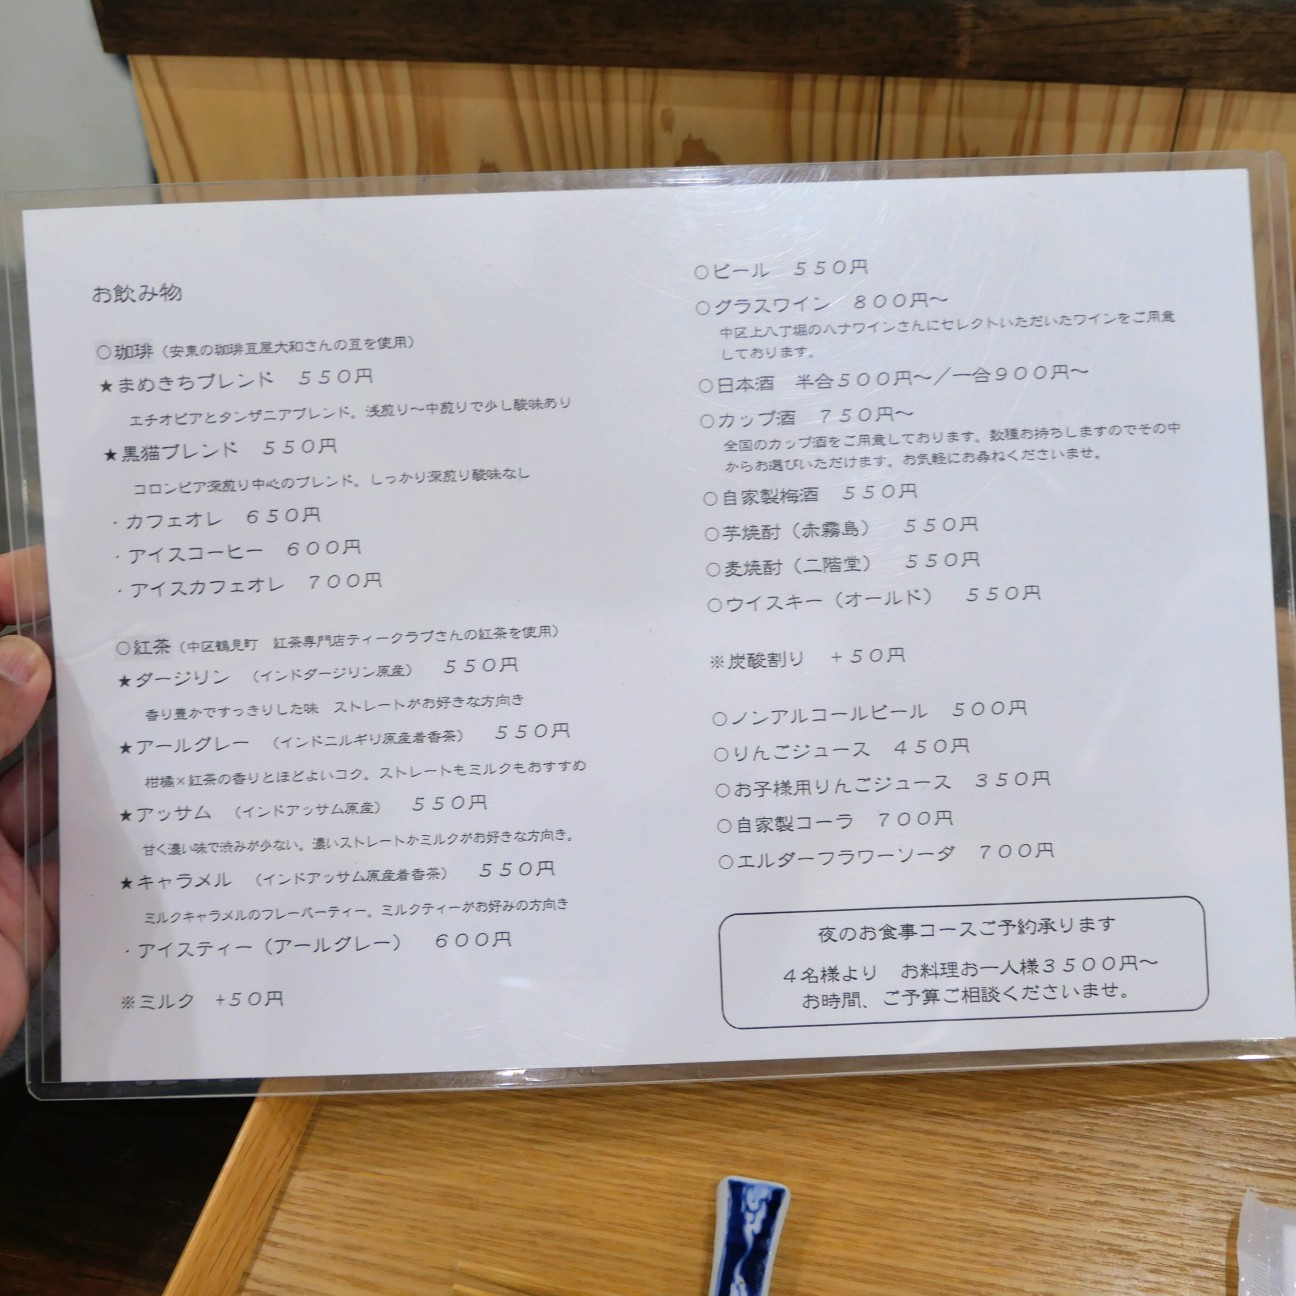 お飲み物
○珈琲（安東の珈琲豆屋大和さんの豆を使用）
★まめきちブレンド　５５０円
エチオピアとタンザニアブレンド。浅煎り～中煎りで少し酸味あり
★黒猫ブレンド　５５０円
コロンビア深煎り中心のブレンド。しっかり深煎り酸味なし
・カフェオレ　６５０円
・アイスコーヒー　６００円
・アイスカフェオレ　７００円
○紅茶（中区鶴見町　紅茶専門店ティークラブさんの紅茶を使用）
★ダージリン　（インドダージリン原産）　５５０円
香り豊かですっきりした味　ストレートがお好きな方向き
★アールグレー　（インドニルギリ原産着香茶）　５５０円
柑橘×紅茶の香りとほどよいコク。ストレートもミルクもおすすめ
★アッサム　（インドアッサム原産）　５５０円
甘く濃い味で渋みが少ない。濃いストレートかミルクがお好きな方向き。
★キャラメル　（インドアッサム原産着香茶）　５５０円
ミルクキャラメルのフレーバーティー。ミルクティーがお好みの方向き
・アイスティー（アールグレー）　６００円
※ミルク　+５０円
○ビール　５５０円
○グラスワイン　８００円～
中区上八丁堀のハナワインさんにセレクトいただいたワインをご用意
しております。
○日本酒　半合５００円～／一合９００円～
○カップ酒　７５０円～
全国のカップ酒をご用意しております。数種お持ちしますのでその中
からお選びいただけます。お気軽にお尋ねくださいませ。
○自家製梅酒　５５０円
○芋焼酎（赤霧島）　５５０円
○麦焼酎（二階堂）　５５０円
○ウイスキー（オールド）　５５０円
※炭酸割り　+５０円
○ノンアルコールビール　５００円
○りんごジュース　４５０円
○お子様用りんごジュース　３５０円
○自家製コーラ　７００円
○エルダーフラワーソーダ　７００円
夜のお食事コースご予約承ります
４名様より　お料理お一人様３５００円～
お時間、ご予算ご相談くださいませ。